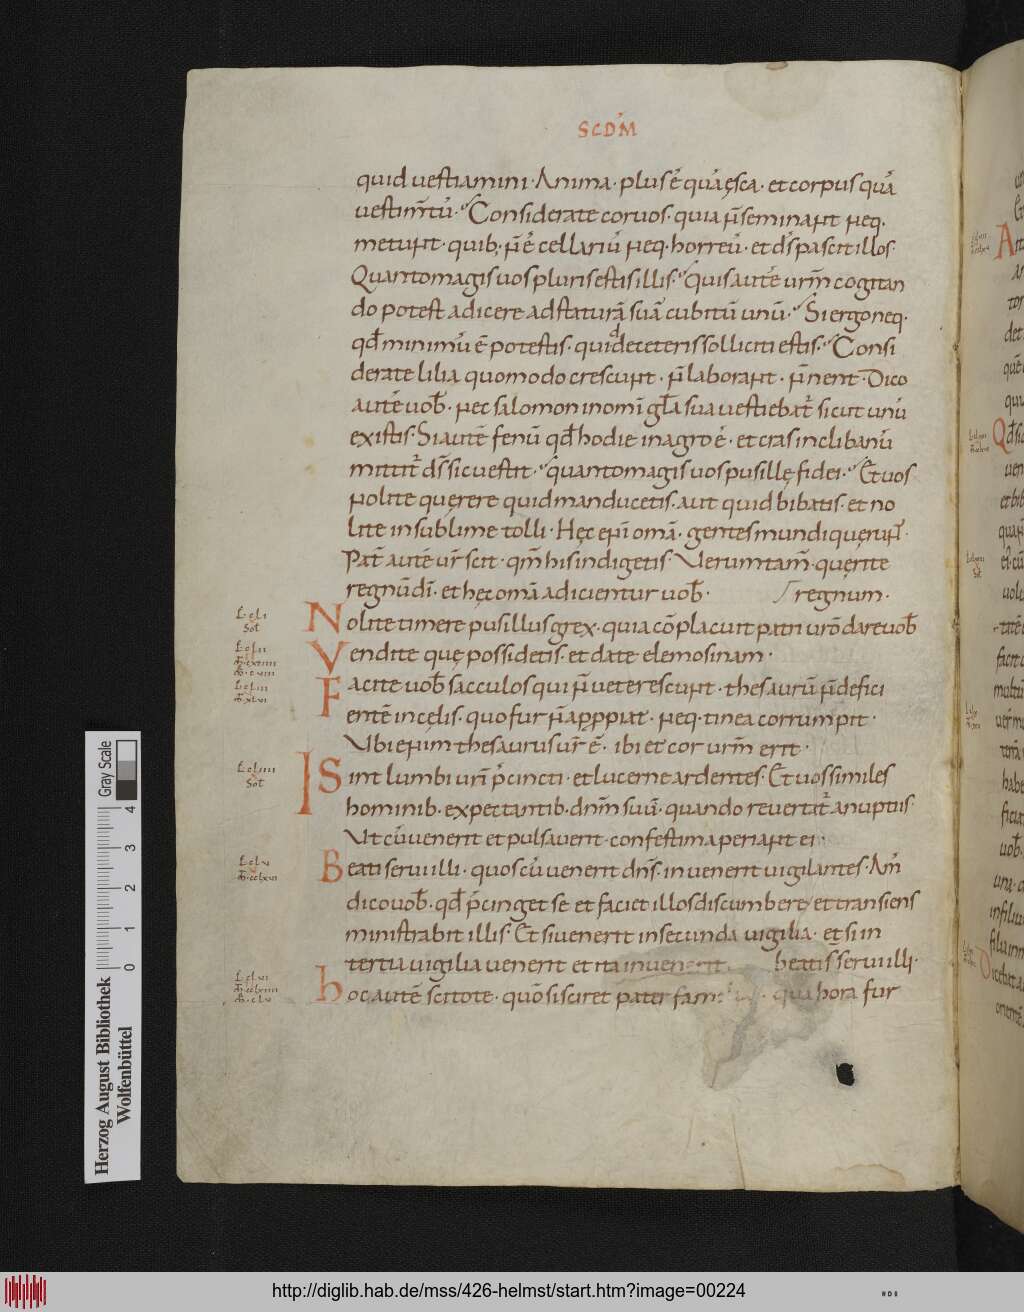 SCDM̄
quid uestiamini · Anima · plus ē quā ęsca · et corpus quā
uestim̄tū · Considerate coruos · quia n̄ seminant neq·
metunt · quib; n̄ ē cellariū neq· horreū · et d̄s pascit illos ·
Quantomagis uos pluris estis illis · Quis autē urm̄ cogitan
do potest adicere ad staturā suā cubitū unū · Si ergo neq·
qđ minimū ē potestis · quid de ceteris solliciti estis · Consi
derate lilia quomodo crescunt · n̄ laborant · n̄ nent · Dico
autē uob̄ · nec salomon in om̄i gl̄a sua uestiebat̄ sicut unū
ex istis · Si autē fenū qđ hodie in agro ē · et cras in clibanū
mittit̄ d̄s sic uestit · quantomagis uos pusillę fidei · Et uos
nolite quęrere quid manducetis · aut quid bibatis · et no
lite in sublime tolli · Hęc eni om̄a · gentes mundi quęrunt̄ ·
Pat̄ autē ur̄ scit · qm̄ his indigetis · Verumtam̄ · quęrite
regnū dī · et hęc om̄a adicientur uob̄ · regnum ·
Nolite timere pusillus grex · quia cōplacuit patri uro dare uob̄
Vendite quę possidetis · et date elemosinam ·
Facite uob̄ sacculos qui n̄ ueterescunt · thesaurū n̄ defici
entē in cęlis · quo fur n̄ appropiat · neq· tinea corrumpit ·
Vbi enim thesaurus ur̄ ē · ibi et cor urm̄ erit ·
Sint lumbi uri p̄cincti · et lucerne ardentes · Et uos similes
hominib· expectantib· dnm̄ suū · quando reuertat̄ a nuptiis ·
Vt cū uenerit et pulsauerit · confestim aperiant ei ·
Beati serui illi · quos cū uenerit dn̄s · inuenerit uigilantes · Am̄
dico uob̄ · qđ p̄cinget se et faciet illos discumbere / et transiens
ministrabit illis · Et si uenerit in secunda uigilia · et si in
tertia uigilia uenerit et ita inuenerit beati s̄ serui illi ·
hoc autē scitote · quō si sciret pater fam qua hora fur
Herzog August Bibliothek
Wolfenbüttel
Gray Scale
0 1 2 3 4
http://diglib.hab.de/mss/426-helmst/start.htm?image=00224